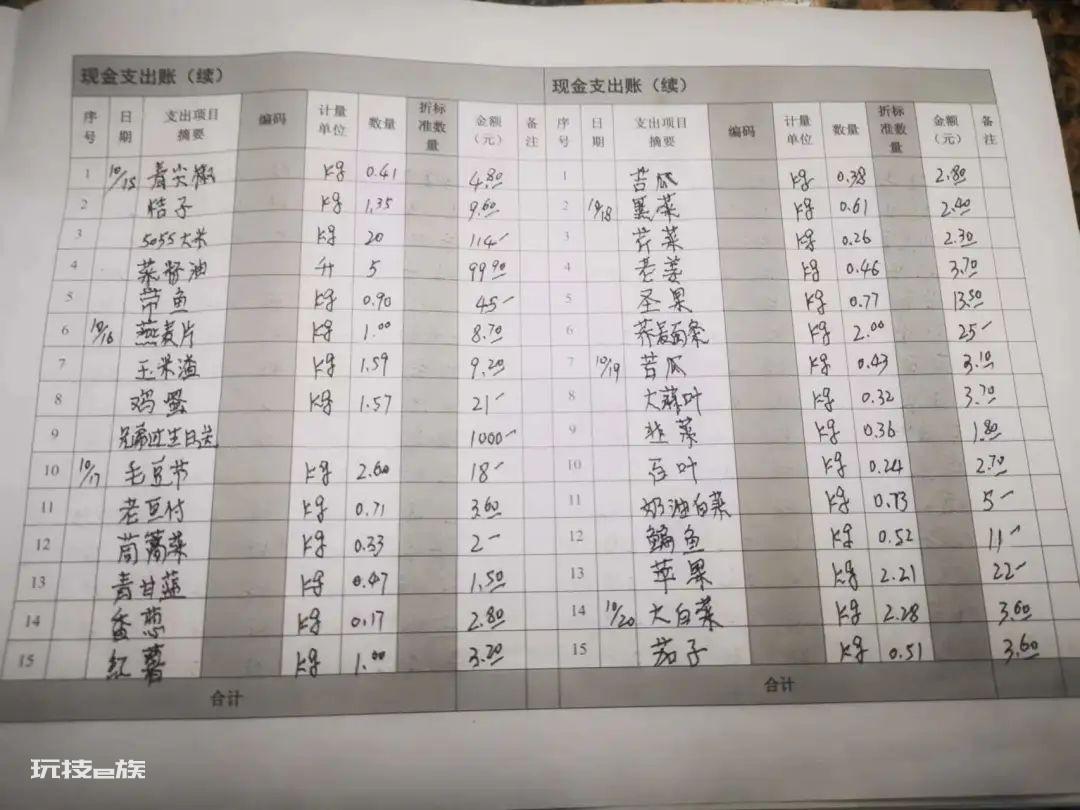 现金支出账（续）
序号 日期 支出项目摘要 编码 计量单位 数量 折标准数量 金额（元） 备注
1 10/15 青尖椒 kg 0.41 4.80
2 桔子 kg 1.35 9.60
3 5055大米 kg 20 114-
4 菜籽油 升 5 99.90
5 带鱼 kg 0.90 45-
6 10/16 燕麦片 kg 1.00 8.70
7 玉米渣 kg 1.59 9.20
8 鸡蛋 kg 1.57 21-
9 兄弟过生日送 1000-
10 10/17 毛豆节 kg 2.60 18-
11 老豆付 kg 0.71 3.60
12 茼蒿菜 kg 0.33 2-
13 青甘蓝 kg 0.47 1.50
14 香葱 kg 0.17 2.80
15 红薯 kg 1.00 3.20
合计
现金支出账（续）
序号 日期 支出项目摘要 编码 计量单位 数量 折标准数量 金额（元） 备注
1 苦瓜 kg 0.38 2.80
2 10/18 黑菜 kg 0.61 2.40
3 芹菜 kg 0.26 2.30
4 老姜 kg 0.46 3.70
5 圣果 kg 0.77 13.50
6 荞麦面条 kg 2.00 25-
7 10/19 苦瓜 kg 0.43 3.10
8 大蒜叶 kg 0.32 3.70
9 韭菜 kg 0.36 1.80
10 百叶 kg 0.24 2.70
11 奶油白菜 kg 0.73 5-
12 鳊鱼 kg 0.52 11-
13 苹果 kg 2.21 22-
14 10/20 大白菜 kg 2.28 3.60
15 茄子 kg 0.51 3.60
合计
玩技e族